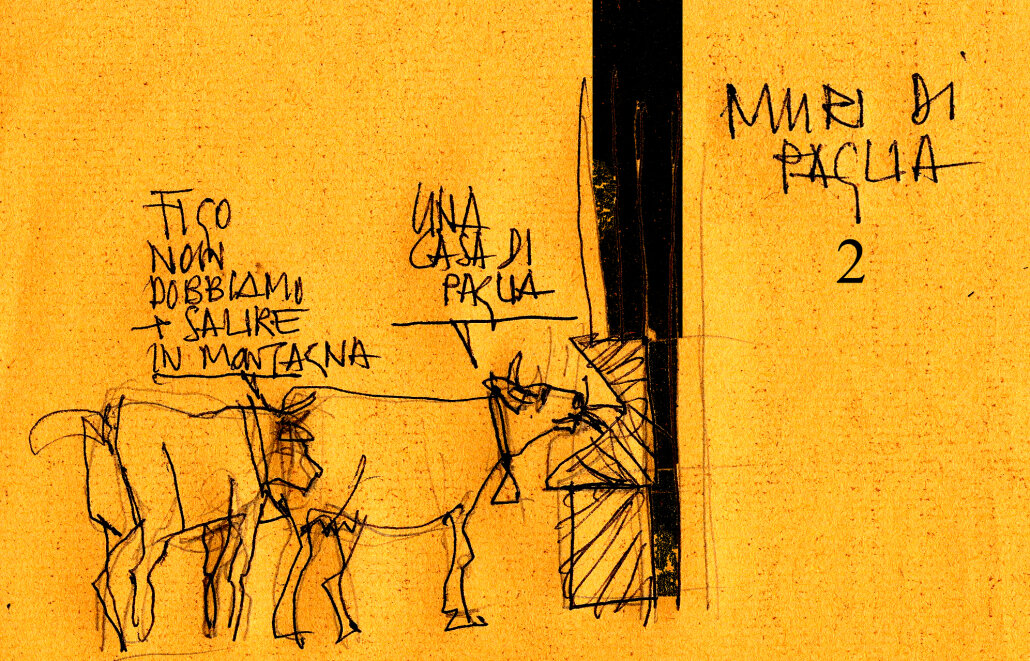 FIGO
NON
DOBBIAMO
+ SALIRE
IN MONTAGNA
UNA
CASA DI
PAGLIA
MURI DI
PAGLIA
2